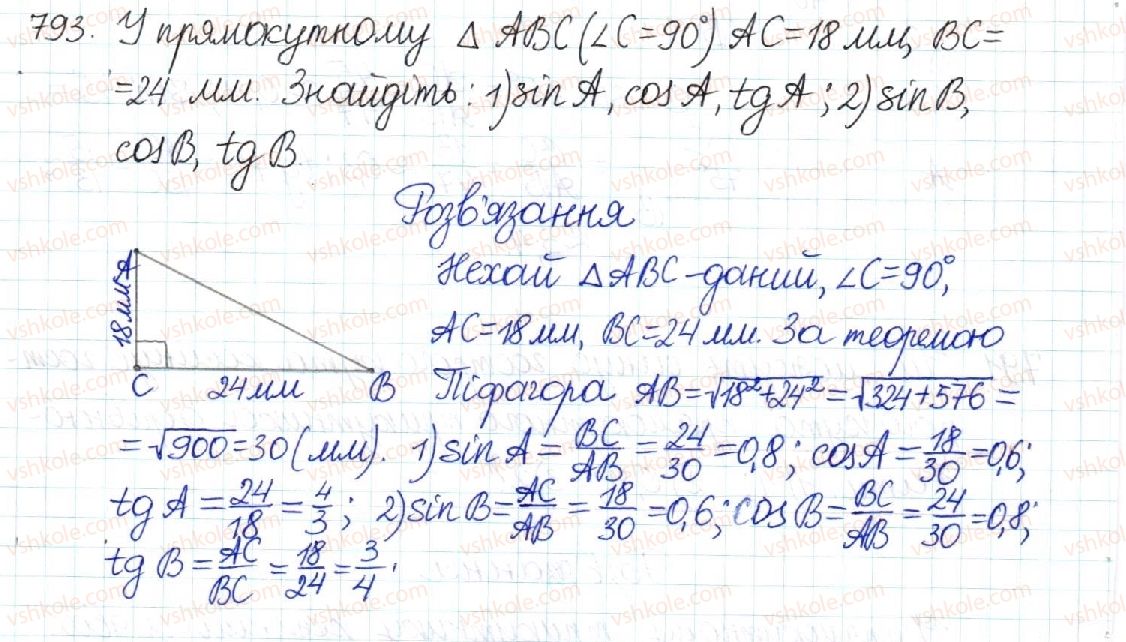 793. У прямокутному △ABC (∠C=90°) AC=18 мм, BC=
=24 мм. Знайдіть: 1) sin A, cos A, tg A; 2) sin B,
cos B, tg B
Розв'язання
Нехай △ABC - даний, ∠C=90°,
AC=18 мм, BC=24 мм. За теоремою
Піфагора AB=√18²+24²=√324+576=
=√900=30 (мм). 1) sin A=BC/AB=24/30=0,8; cos A=18/30=0,6;
tg A=24/18=4/3; 2) sin B=AC/AB=18/30=0,6; cos B=BC/AB=24/30=0,8;
tg B=AC/BC=18/24=3/4.
A
18 мм
C 24 мм B
vshkole.com